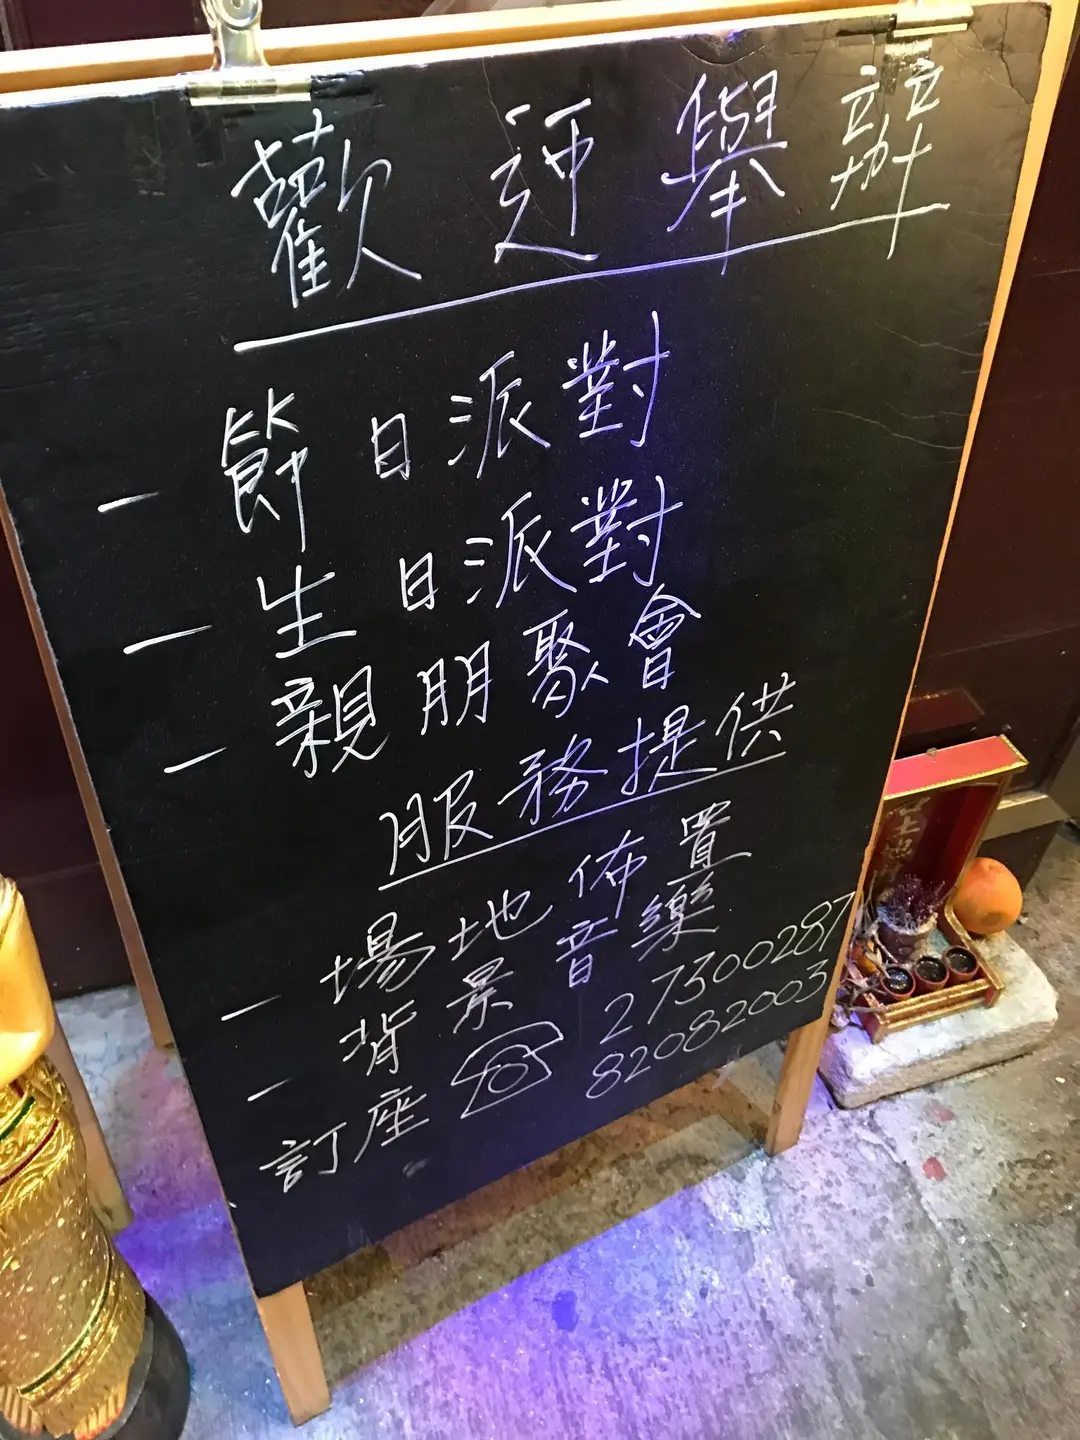 歡迎舉辦
– 節日派對
– 生日派對
– 親朋聚會
服務提供
– 場地佈置
– 背景音樂
訂座 ☎ 27300287
82082003